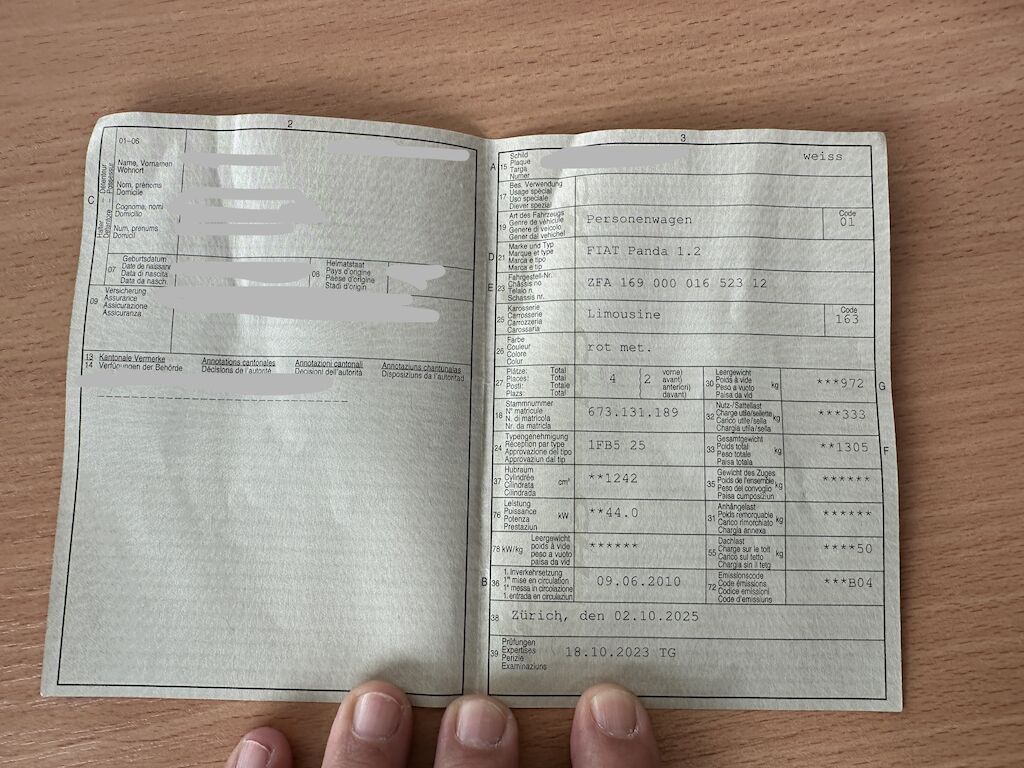 2
01–06
C
Halter – Détenteur
Detentore – Possessur
Name, Vornamen
Wohnort
Nom, prénoms
Domicile
Cognome, nomi
Domicilio
Num, prenums
Domicil
07
Geburtsdatum
Date de naissance
Data di nascita
Data da nasch.
08
Heimatstaat
Pays d'origine
Paese d'origine
Stadi d'origin
09
Versicherung
Assurance
Assicurazione
Assicuranza
13
14
Kantonale Vermerke
Verfügungen der Behörde
Annotations cantonales
Décisions de l'autorité
Annotazioni cantonali
Decisioni dell'autorità
Annotaziuns chantunalas
Disposiziuns da l'autoritad
3
A 15 Schild
Plaque
Targa
Numer
weiss
17 Bes. Verwendung
Usage spécial
Uso speciale
Diever spezial
19 Art des Fahrzeugs
Genre de véhicule
Genere di veicolo
Gener dal vehichel
Personenwagen
Code
01
D 21 Marke und Typ
Marque et type
Marca e tipo
Marca e tip
FIAT Panda 1.2
E 23 Fahrgestell-Nr.
Châssis no
Telaio n.
Schassis nr.
ZFA 169 000 016 523 12
25 Karosserie
Carrosserie
Carrozzeria
Carossaria
Limousine
Code
163
26 Farbe
Couleur
Colore
Colur
rot met.
27 Plätze: Total
Places: Total
Posti: Totale
Plazs: Total
4
2
vorne)
avant)
anteriori)
davant)
30 Leergewicht
Poids à vide
Peso a vuoto
Paisa da vid
kg
***972
G
18 Stammnummer
N° matricule
N. di matricola
Nr. da matricla
673.131.189
32 Nutz-/Sattellast
Charge utile/sellette
Carico utile/sella
Chargia utila/sella
kg
***333
24 Typengenehmigung
Réception par type
Approvazione del tipo
Approvaziun dal tip
1FB5 25
33 Gesamtgewicht
Poids total
Peso totale
Paisa totala
kg
**1305
F
37 Hubraum
Cylindrée
Cilindrata
Cilindrada
cm³
**1242
35 Gewicht des Zuges
Poids de l'ensemble
Peso del convoglio
Paisa cumposiziun
kg
******
76 Leistung
Puissance
Potenza
Prestaziun
kW
**44.0
31 Anhängelast
Poids remorquable
Carico rimorchiato
Chargia annexa
kg
******
78 kW/kg
Leergewicht
poids à vide
peso a vuoto
paisa da vid
******
55 Dachlast
Charge sur le toit
Carico sul tetto
Chargia sin il tetg
kg
****50
B 36 1. Inverkehrsetzung
1re mise en circulation
1a messa in circolazione
1. entrada en circulaziun
09.06.2010
72 Emissionscode
Code émissions
Codice emissioni
Code d'emissiuns
***B04
38 Zürich, den 02.10.2025
39 Prüfungen
Expertises
Perizie
Examinaziuns
18.10.2023 TG